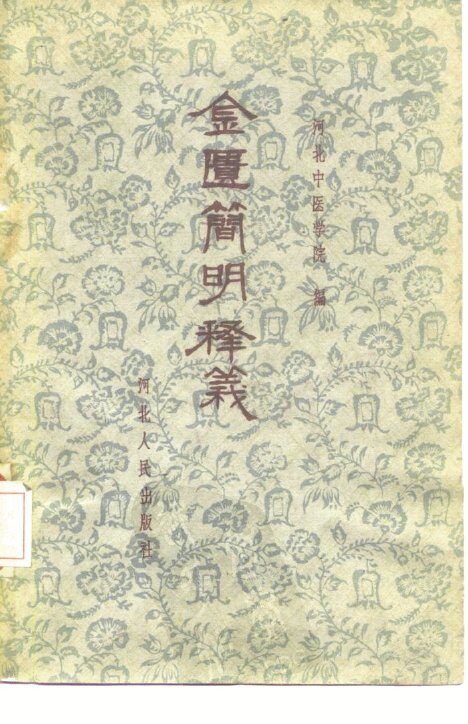 河北中医学院 编
金匱簡明释義
河北人民出版社